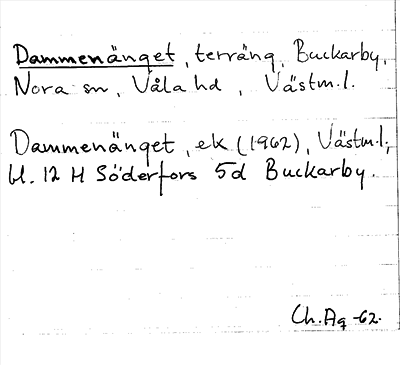 Dammenänget, terräng, Buckarby,
Nora sn, Våla hd, Västm.l.
Dammenänget, ek (1962), Västm.l.,
bl. 12 H Söderfors 5d Buckarby.
Ch.Ag -62.